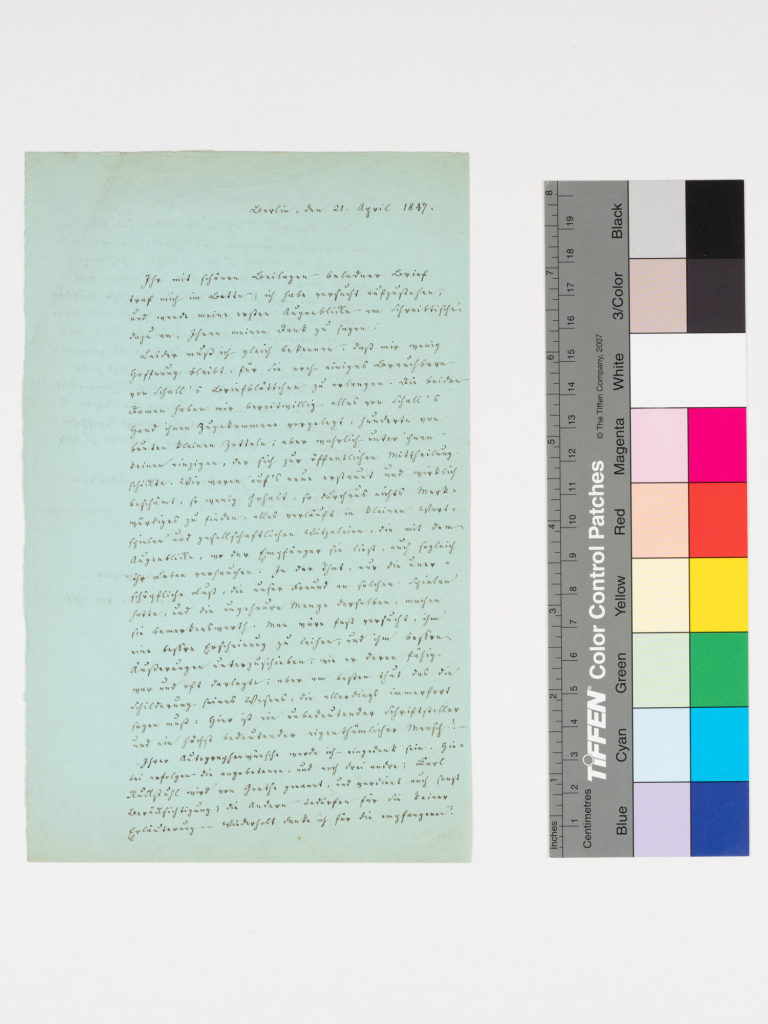 Berlin, den 21. April 1847.
Ihr mit schönen Beilagen beladner Brief
traf mich im Bette; ich habe versucht aufzustehen,
und wende meine ersten Augenblicke am Schreibtische
dazu an, Ihnen meinen Dank zu sagen.
Leider muß ich gleich bekennen, daß mir wenig
Hoffnung bleibt, für Sie noch einiges Brauchbare
von Schall's Briefblättchen zu erlangen. Die beiden
Damen haben mir bereitwillig alles von Schall's
Hand ihnen Zugekommene vorgelegt, hunderte von
bunten kleinen Zetteln; aber wahrlich unter ihnen
keinen einzigen, der sich zur öffentlichen Mittheilung
schickte. Wir waren auf's neue erstaunt und wirklich
beschämt, so wenig Gehalt, so durchaus nichts Merk-
würdiges zu finden, alles verläuft in kleinen Wort-
spielen und gesellschaftlichen Witzeleien, die mit dem
Augenblicke, wo der Empfänger sie liest, auch sogleich
ihr Leben verhauchen. In der That, nur die uner-
schöpfliche Lust, die unser Freund an solchen Spielen
hatte, und die ungeheure Menge derselben, machen
sie bemerkenswerth. Man wäre fast versucht, ihm
eine beßre Erscheinung zu leihen, und ihm beßre
Äußerungen unterzuschieben, wie er deren fähig
war und oft darlegte; aber am besten thut das die
Schilderung seines Wesens, die allerdings immerfort
sagen muß: Hier ist ein unbedeutender Schriftsteller
und ein höchst bedeutender eigenthümlicher Mensch! –
Ihrer Autographenwünsche werde ich eingedenk sein. Hie-
bei erfolgen die angebotenen, und noch drei andre; Carl
Ruckstuhl wird von Goethe genannt, und verdient auch sonst
Berücksichtigung; die Andern bedürfen für Sie keiner
Erläuterung. – Wiederholt danke ich für die empfangenen!
Inches
Centimetres
1 2 3 4 5 6 7 8
1 2 3 4 5 6 7 8 9 10 11 12 13 14 15 16 17 18 19
TIFFEN Color Control Patches
© The Tiffen Company, 2007
Blue
Cyan
Green
Yellow
Red
Magenta
White
3/Color
Black